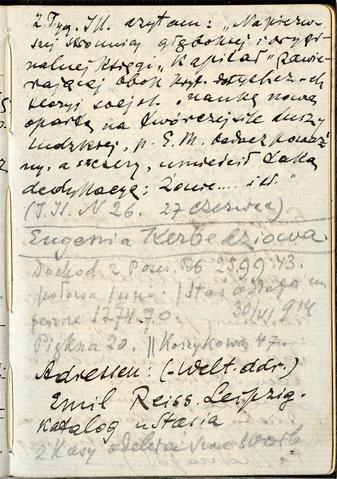 z Tyg. Ill. czytam: „Na pierw-
szej stronicy głębokiej i orygi-
nalnej księgi „Kapitał" zawie-
rającej obok kryt. dotychcz-ch
teoryi socjol. naukę nową
opartą na twórczej sile duszy
ludzkiej, p. E. M. badacz poważ-
ny, a szczery, umieścił taką
dedykację: Żonie.... itd."
(T. Ill. N 26. 27 czerwca)
Eugenia Kerbedziowa.
Dochód z Poses. Rb 2599.43.
połowa
1274.70. 30/VI 914
Piękna 20. || Koszykowa 47.
Adressen: (-Welt.-Adr.)
Emil Reiss. Leipzig.
Katalog u Stasia
z Kasy